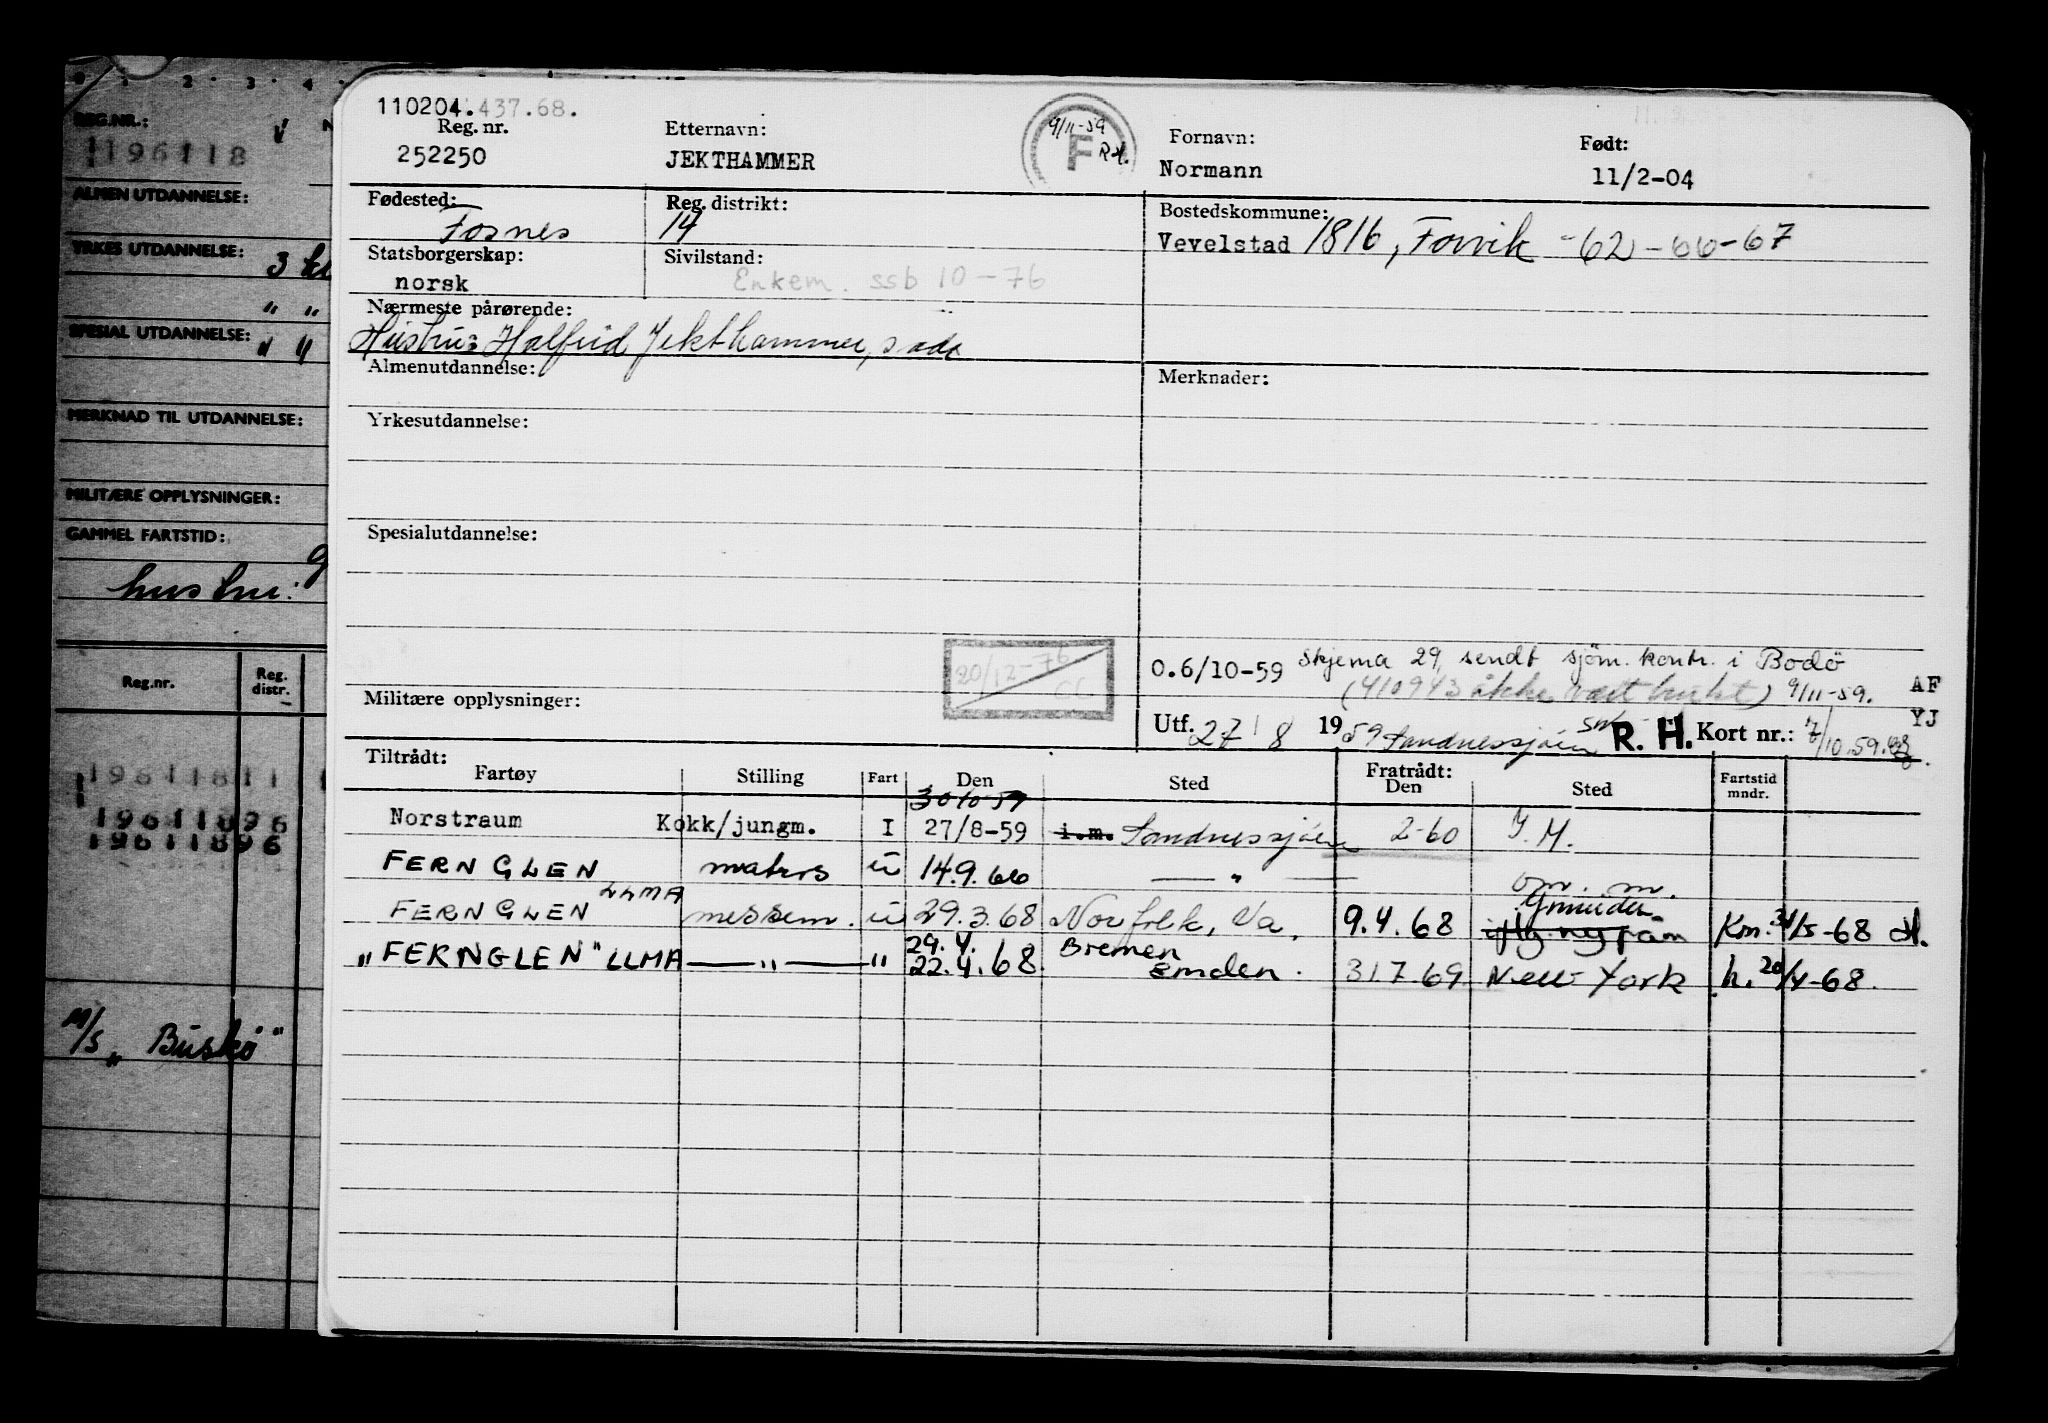 0 1 2 3 4
REG.NR.:
196118
ALMEN UTDANNELSE:
YRKES UTDANNELSE: 3 kl
" "
SPESIAL UTDANNELSE:
MERKNAD TIL UTDANNELSE:
MILITÆRE OPPLYSNINGER:
GAMMEL FARTSTID:
hustru:
Reg.nr. Reg. distr.
19611811
19611896
19611896
M/S „Buskø"
110204.437.68.
Reg. nr. Etternavn: Fornavn: Født:
252250 JEKTHAMMER Normann 11/2-04
9/11-59
F R.H.
Fødested: Reg. distrikt: Bostedskommune:
Fosnes 14 Vevelstad 1816, Forvik -62-66-67
Statsborgerskap: Sivilstand:
norsk Enkem. ssb 10-76
Nærmeste pårørende:
Hustru: Halfrid Jekthammer, s.adr
Almenutdannelse: Merknader:
Yrkesutdannelse:
Spesialutdannelse:
20/12-76
CC
O.6/10-59 Skjema 29, sendt sjøm. kontr. i Bodø
(410943 ikke vært brukt) 9/11-59. AF
Militære opplysninger: Utf. 27/8 1959 Sandnessjøen R. H. Kort nr.: YJ
7/10.59.
Tiltrådt: Fratrådt:
Fartøy Stilling Fart Den Sted Den Sted Fartstid mndr.
30 10-59
Norstraum Kokk/jungm. I 27/8-59 i.m. Sandnessjøen 2-60 I.M.
FERNGLEN matros u 14.9.66 — " — om. m.
FERNGLEN LLMA messem. u 29.3.68 Norfolk, Va. 9.4.68 Gmunden Km. 31/5-68 H.
29.4. Bremen
„FERNGLEN" LLMA — " — " 22.4.68 Emden. 31.7.69 New York h. 20/4-68.